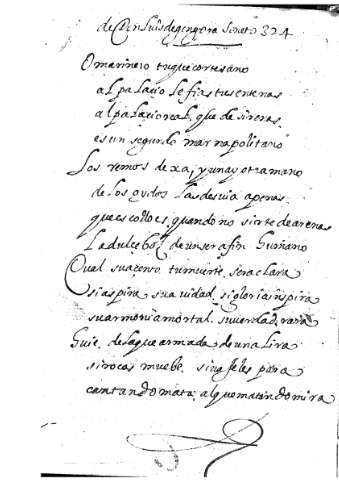 de Don Luis de gongora Soneto 324
O marinero tu que cortesano
al palacio le fias tus entenas
al palacio real, que de sirenas
es un segundo mar napolitano
Los remos dexa, y una y otra mano
de los oydos las desvia apenas
que escollo es, quando no sirte de arenas
La dulce boz de un serafin humano
Qual su acento tu muerte, sera clara
si aspira suavidad, si gloria inspira
su armonia mortal, su verdad rara
Huie de la que armada de una lira
si rocas muebe, si vageles para
cantando mata al que matando mira